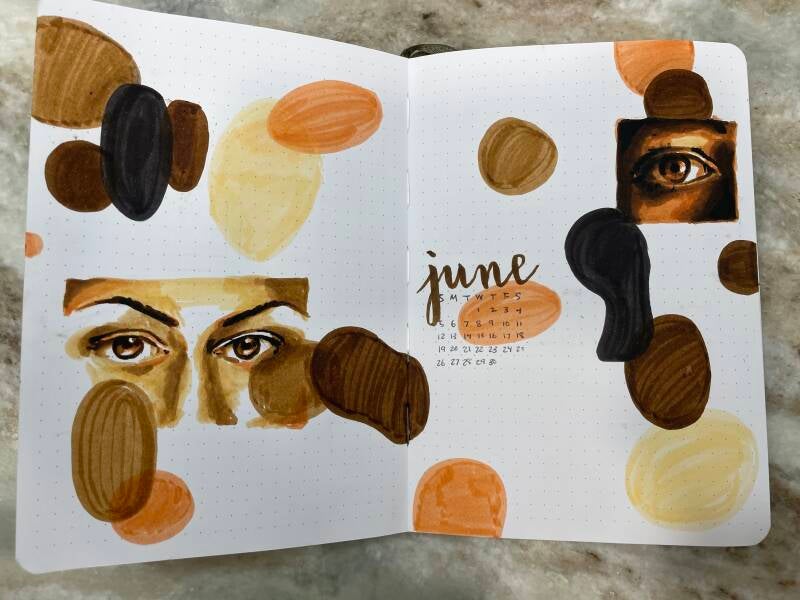 june
S M T W T F S
1 2 3 4
5 6 7 8 9 10 11
12 13 14 15 16 17 18
19 20 21 22 23 24 25
26 27 28 29 30